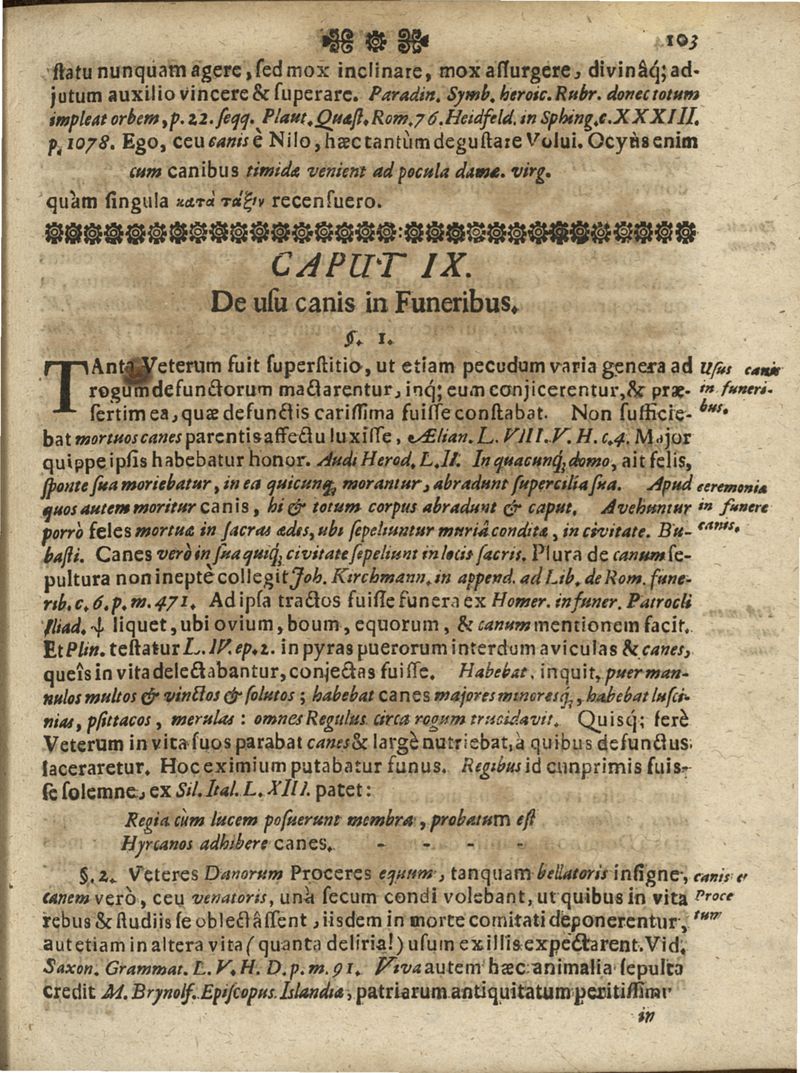 103
ſtatu nunquam agere, ſed mox inclinare, mox aſſurgere, divinâq; ad-
jutum auxilio vincere & ſuperare. Paradin. Symb. heroic. Rubr. donec totum
impleat orbem, p. 22. ſeqq. Plaut. Quæſt. Rom. 76. Heidfeld. in Sphing. c. XXXIII.
p. 1078. Ego, ceu canis è Nilo, hæc tantùm deguſtare Volui. Ocyùs enim
cum canibus timidæ venient ad pocula damæ. virg.
quàm ſingula κατὰ τάξιν recenſuero.
CAPUT IX.
De uſu canis in Funeribus.
§. 1.
TAnta Veterum fuit ſuperſtitio, ut etiam pecudum varia genera ad Uſus canis
rogum defunctorum mactarentur, inq; eum conjicerentur, & præ- in funeri-
ſertim ea, quæ defunctis cariſſima fuiſſe conſtabat. Non ſufficie- bus.
bat mortuos canes parentis affectu luxiſſe, Ælian. L. VIII. V. H. c. 4. Major
quippe ipſis habebatur honor. Audi Herod. L. II. In quacunq; domo, ait felis,
ſponte ſua moriebatur, in ea quicunq; morantur, abradunt ſupercilia ſua. Apud ceremonia
quos autem moritur canis, hi & totum corpus abradunt & caput. Avehuntur in funere
porrò feles mortuæ in ſacras ædes, ubi ſepeliuntur muriâ condita, in civitate. Bu- canis.
baſti. Canes verò in ſua quiq; civitate ſepeliunt in locis ſacris. Plura de canum ſe-
pultura non ineptè collegit Joh. Kirchmann. in append. ad Lib. de Rom. fune-
rib. c. 6. p. m. 471. Ad ipſa tractos fuiſſe funera ex Homer. in funer. Patrocli
Iliad. ψ liquet, ubi ovium, boum, equorum, & canum mentionem facit.
Et Plin. teſtatur L. IV. ep. 2. in pyras puerorum interdum aviculas & canes,
queîs in vita delectabantur, conjectas fuiſſe. Habebat, inquit, puer man-
nulos multos & vinctos & ſolutos; habebat canes majores minoresq; , habebat luſci-
nias, pſittacos, merulas: omnes Regulus circa rogum trucidavit. Quisq; ferè
Veterum in vita ſuos parabat canes & largè nutriebat, à quibus defunctus
laceraretur. Hoc eximium putabatur funus. Regibus id cunprimis fuiſ-
ſe ſolemne, ex Sil. Ital. L. XIII. patet:
Regia cùm lucem poſuerunt membra, probatum eſt
Hyrcanos adhibere canes. - - - -
§. 2. Veteres Danorum Proceres equum, tanquam bellatoris inſigne, canis e
canem verò, ceu venatoris, unà ſecum condi volebant, ut quibus in vita Proce
rebus & ſtudiis ſe oblectâſſent, iisdem in morte comitati deponerentur, tum
aut etiam in altera vita (quanta deliria!) uſum ex illis expectarent. Vid.
Saxon. Grammat. L. V. H. D. p. m. 91. Viva autem hæc animalia ſepulta
credit M. Brynolf. Epiſcopus Islandiæ, patriarum antiquitatum peritiſſimu
in